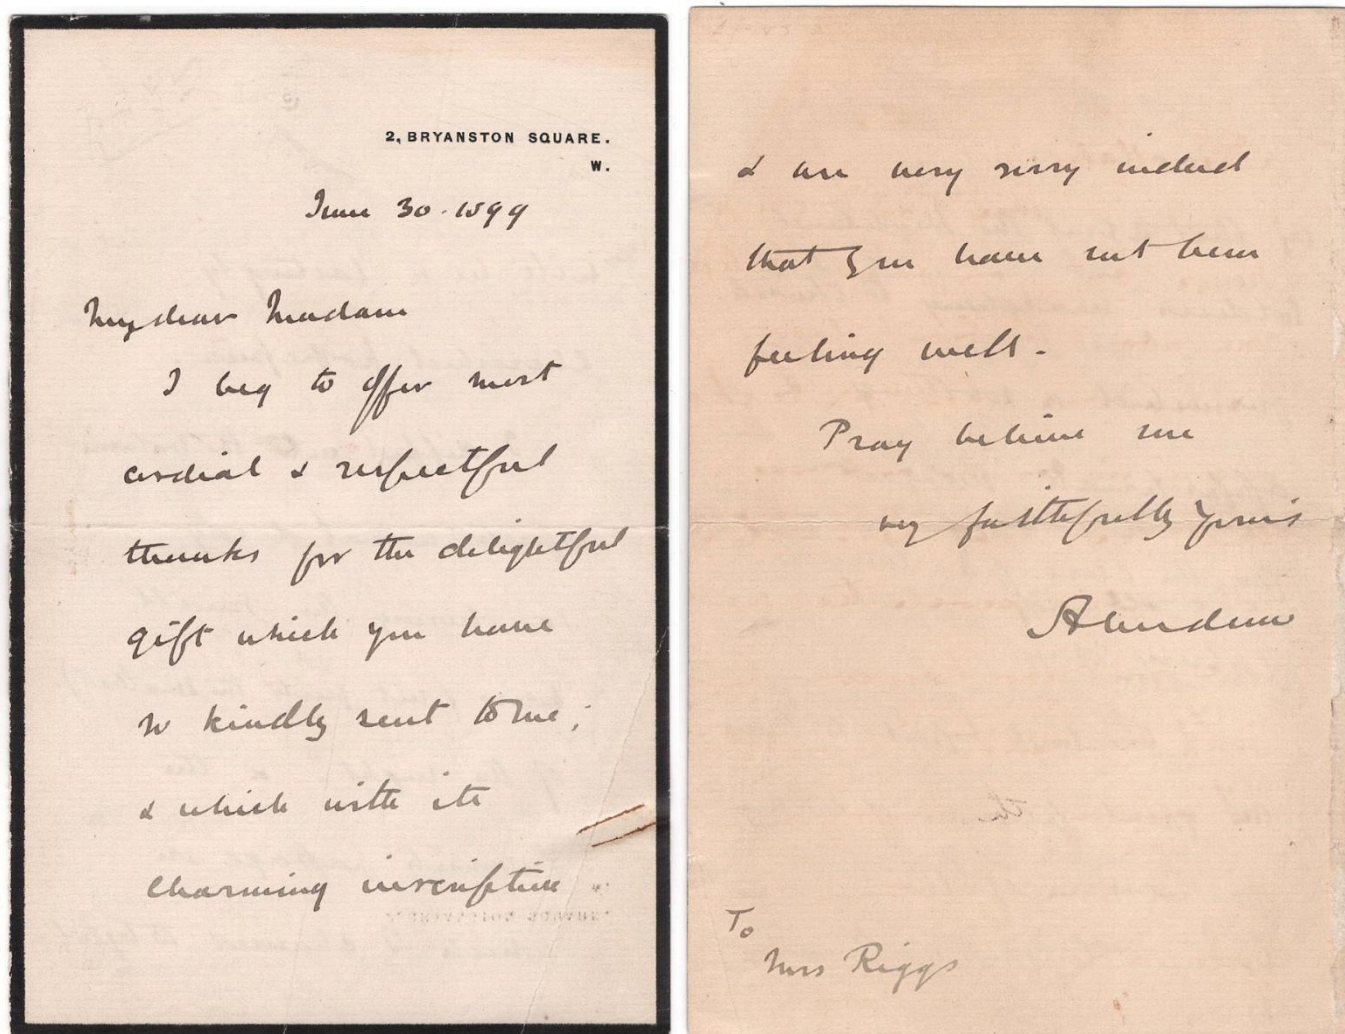 2, BRYANSTON SQUARE.
W.
June 30. 1899
My dear Madam
I beg to offer most
cordial & respectful
thanks for the delightful
gift which you have
so kindly sent to me;
& which with its
charming inscription
& are very sorry indeed
that you have not been
feeling well.
Pray believe me
vy faithfully yours
Aberdeen
To
Mrs Riggs